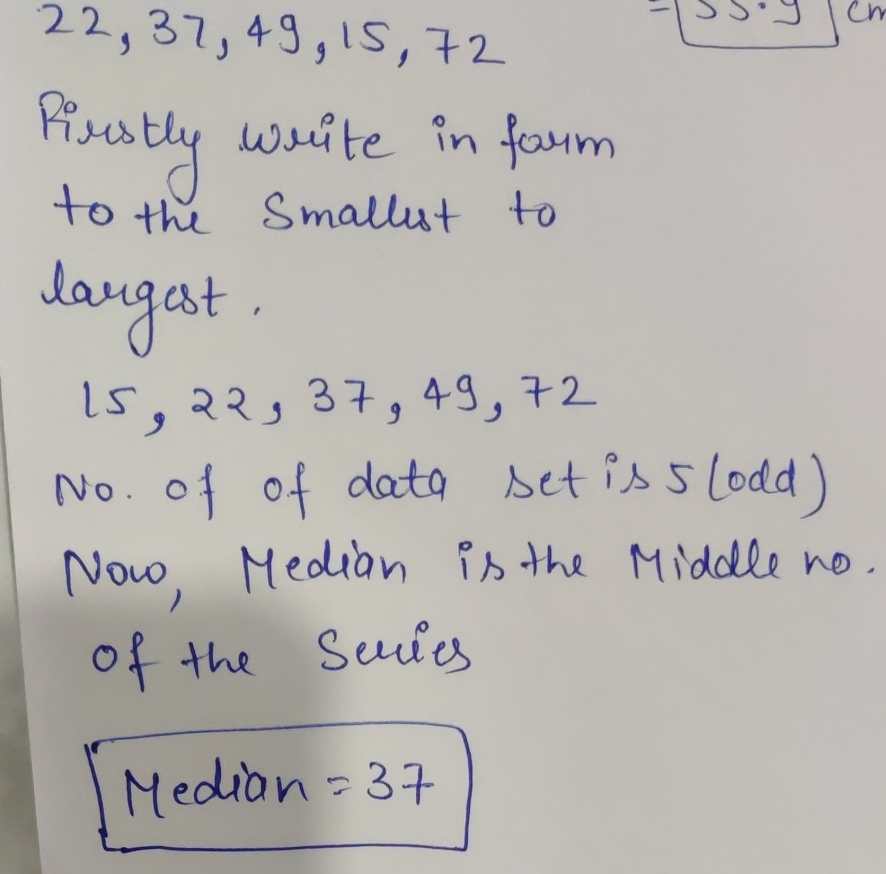 22, 37, 49, 15, 72
Firstly write in form
to the Smallest to
largest.
15, 22, 37, 49, 72
No. of of data set is 5 (odd)
Now, Median is the Middle no.
of the Series
Median = 37
cm